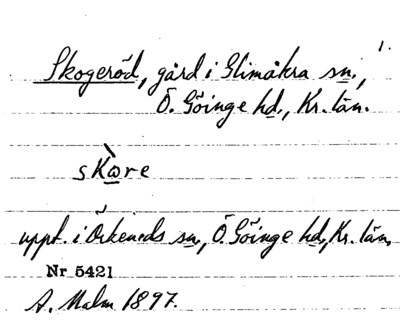 1.
Skogeröd, gård i Glimåkra sn.,
Ö. Göinge hd., Kr. län.
uppt. i Örkeneds sn., Ö. Göinge hd., Kr. län.
Nr 5421
A. Malm 1897.